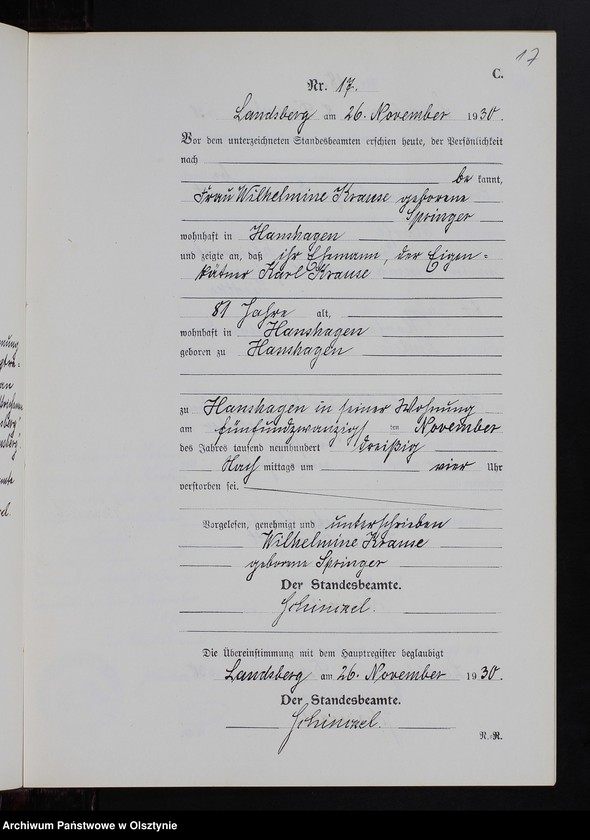 17
C.
Nr. 17.
Landsberg am 26. November 1930.
Vor dem unterzeichneten Standesbeamten erschien heute, der Persönlichkeit
nach
be kannt,
Frau Wilhelmine Krause geborene
Springer
wohnhaft in Hanshagen
und zeigte an, daß ihr Ehemann, der Eigen=
kätner Karl Krause
81 Jahre alt,
wohnhaft in Hanshagen
geboren zu Hanshagen
zu Hanshagen in seiner Wohnung
am fünfundzwanzigsten November
des Jahres tausend neunhundert dreißig
Nach mittags um vier Uhr
verstorben sei.
Vorgelesen, genehmigt und unterschrieben
Wilhelmine Krause
geborene Springer
Der Standesbeamte.
Die Übereinstimmung mit dem Hauptregister beglaubigt
Landsberg am 26. November 1930.
Der Standesbeamte.
R.-R.
Archiwum Państwowe w Olsztynie